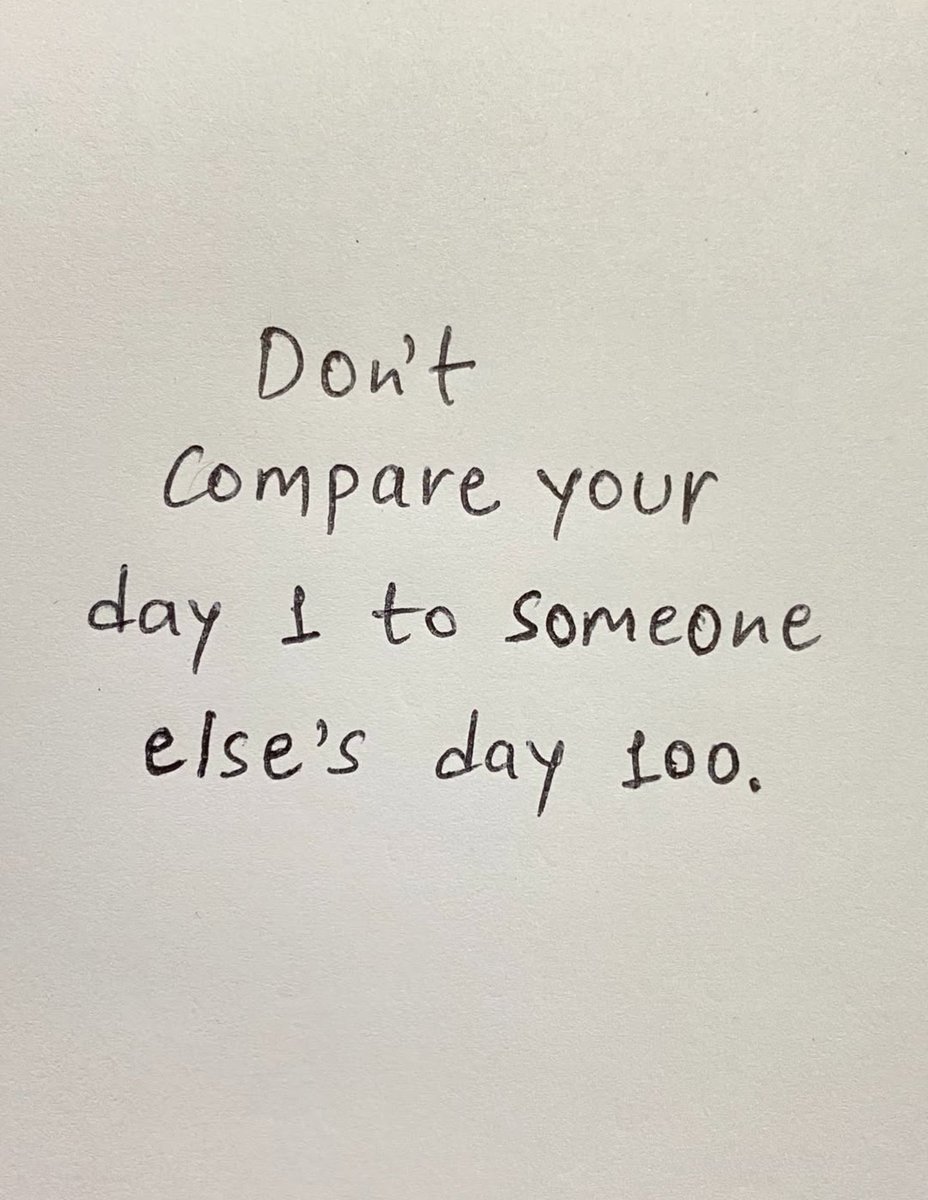 Don't
Compare your
day 1 to someone
else's day 100.